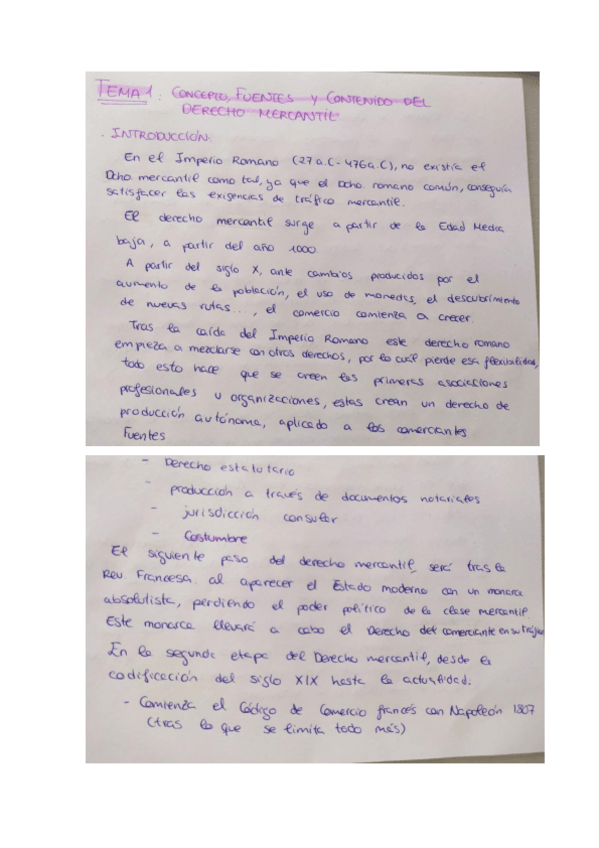 TEMA 1: CONCEPTO, FUENTES Y CONTENIDO DEL
DERECHO MERCANTIL
. INTRODUCCIÓN.
En el Imperio Romano (27 a.C - 476 a.C), no existía el
Dcho. mercantil como tal, ya que el Dcho. romano común, conseguía
satisfacer las exigencias de tráfico mercantil.
El derecho mercantil surge a partir de la Edad Media
baja, a partir del año 1000.
A partir del siglo X, ante cambios producidos por el
aumento de la población, el uso de monedas, el descubrimiento
de nuevas rutas..., el comercio comienza a crecer.
Tras la caída del Imperio Romano este derecho romano
empieza a mezclarse con otros derechos, por lo cual pierde esa flexibilidad,
todo esto hace que se creen las primeras asociaciones
profesionales u organizaciones, estas crean un derecho de
producción autónoma, aplicado a los comerciantes.
Fuentes
- Derecho estatutario
- producción a través de documentos notariales
- jurisdicción consular
- Costumbre
El siguiente paso del derecho mercantil, será tras la
Rev. Francesa. al aparecer el Estado moderno con un monarca
absolutista, perdiendo el poder político de la clase mercantil.
Este monarca llevará a cabo el Derecho del comerciante en su
En la segunda etapa del Derecho mercantil, desde la
codificación del siglo XIX hasta la actualidad.
- Comienza el Código de Comercio francés con Napoleón 1807
(tras lo que se limita todo más)